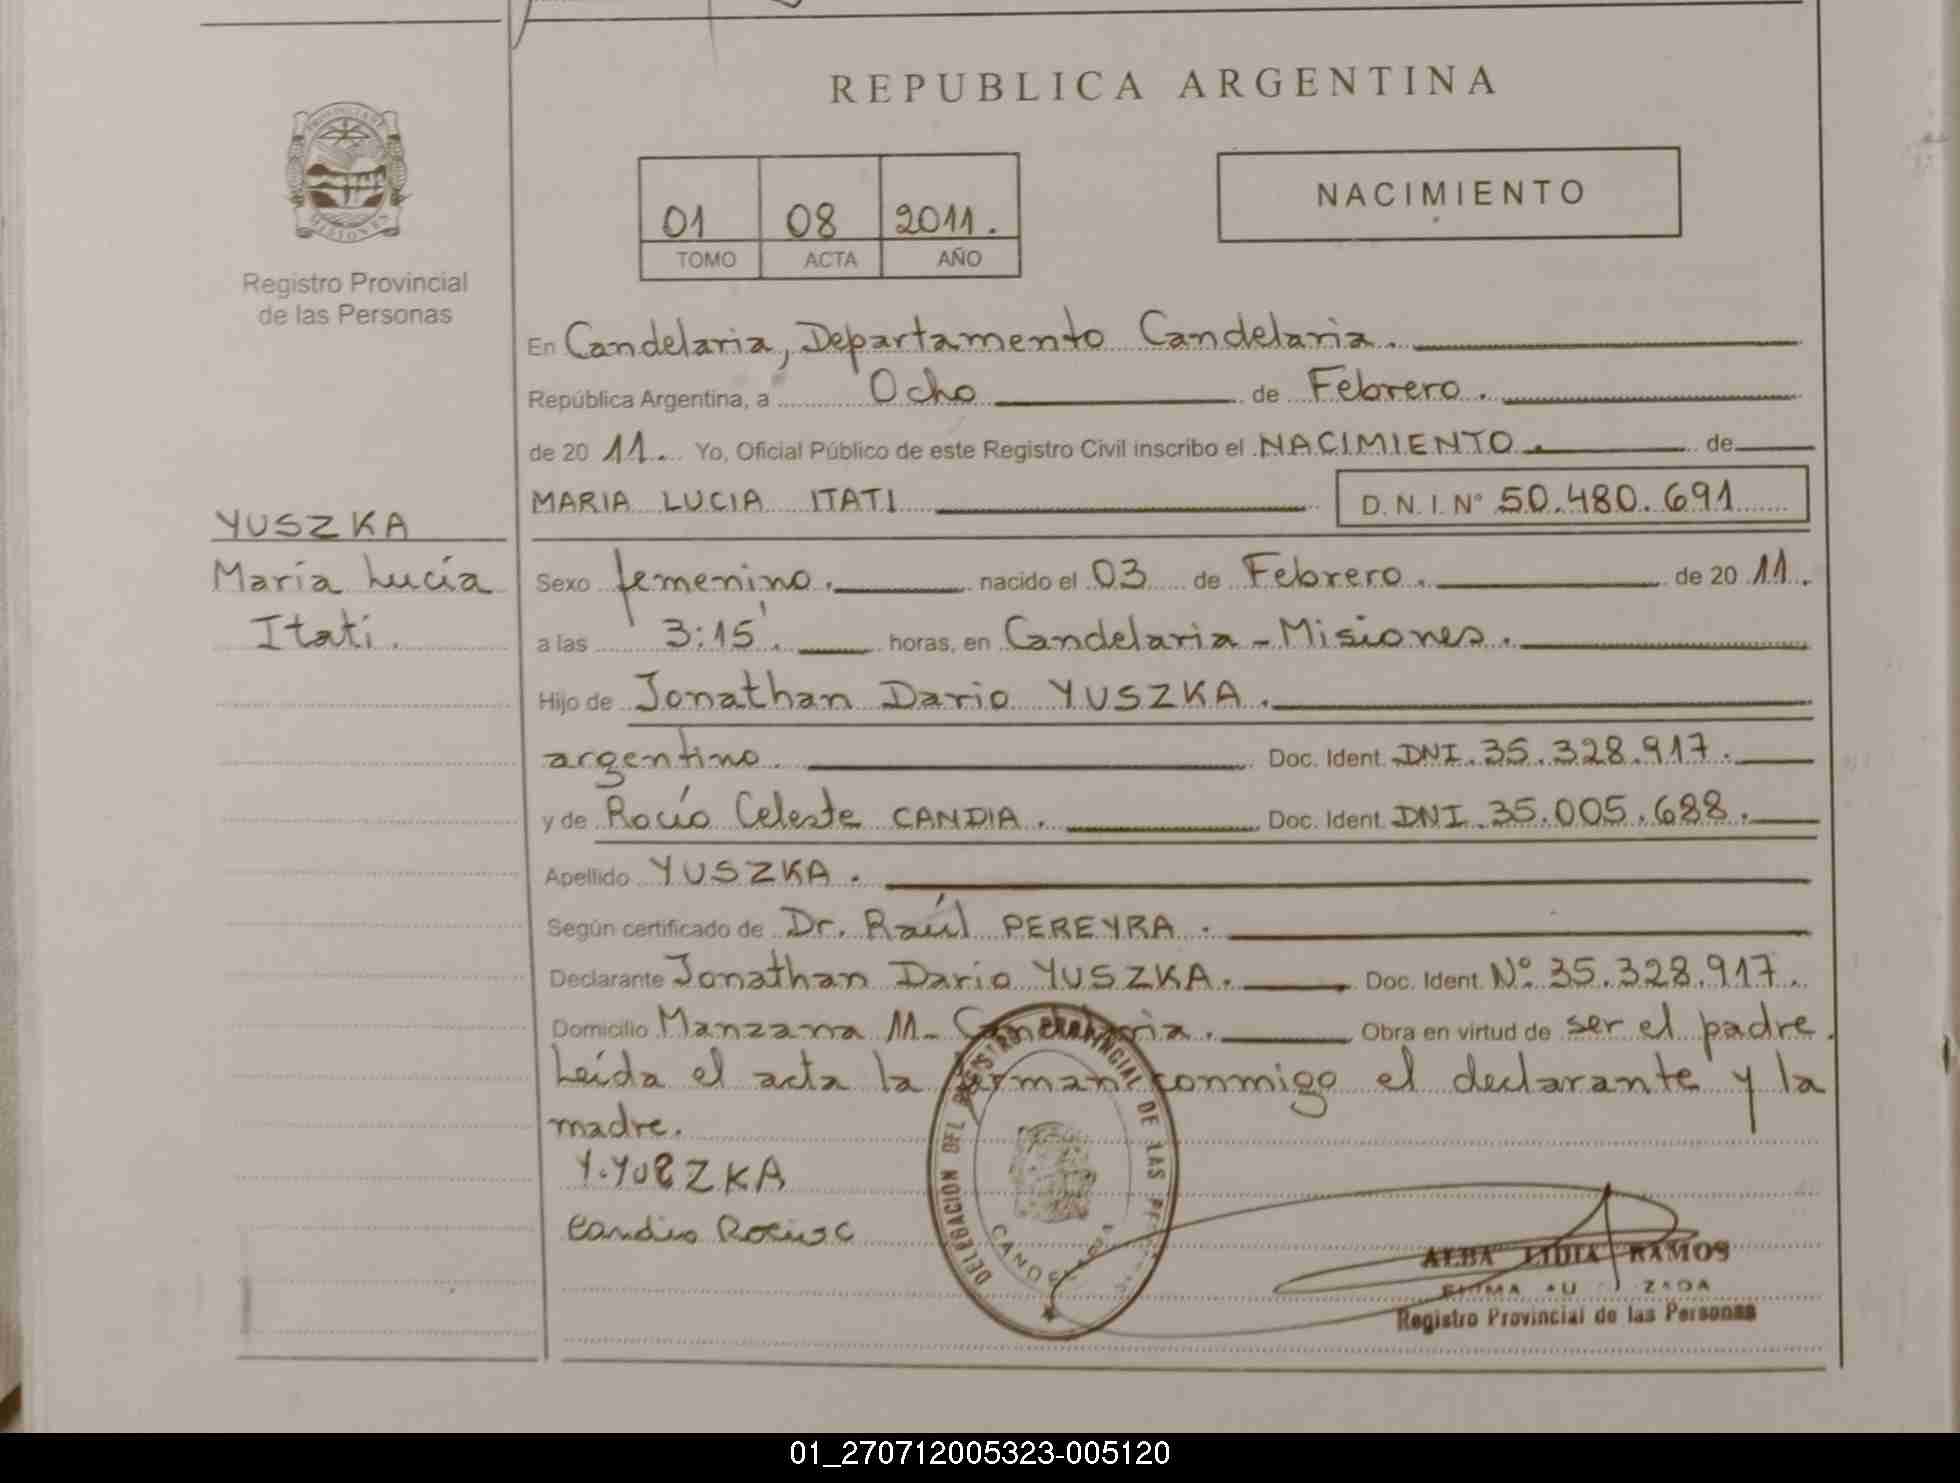 REPUBLICA ARGENTINA
NACIMIENTO
01 08 2011.
TOMO ACTA AÑO
Registro Provincial
de las Personas
YUSZKA
María Lucía
Itatí.
En Candelaria, Departamento Candelaria.
República Argentina, a Ocho de Febrero.
de 20 11. Yo, Oficial Público de este Registro Civil inscribo el NACIMIENTO. de
MARIA LUCIA ITATI D.N.I. N° 50.480.691
Sexo femenino. nacido el 03 de Febrero. de 20 11.
a las 3:15'. horas, en Candelaria - Misiones.
Hijo de Jonathan Dario YUSZKA.
argentino. Doc. Ident. DNI. 35.328.917.
y de Rocío Celeste CANDIA. Doc. Ident. DNI. 35.005.688.
Apellido YUSZKA.
Según certificado de Dr. Raúl PEREYRA.
Declarante Jonathan Dario YUSZKA. Doc. Ident. N° 35.328.917.
Domicilio Manzana 11 - Candelaria. Obra en virtud de ser el padre.
Leída el acta la firman conmigo el declarante y la
madre.
Y.YUSZKA
DELEGACION DEL REGISTRO PROVINCIAL DE LAS
CANDELARIA
ALBA LIDIA RAMOS
Registro Provincial de las Personas
01_270712005323-005120